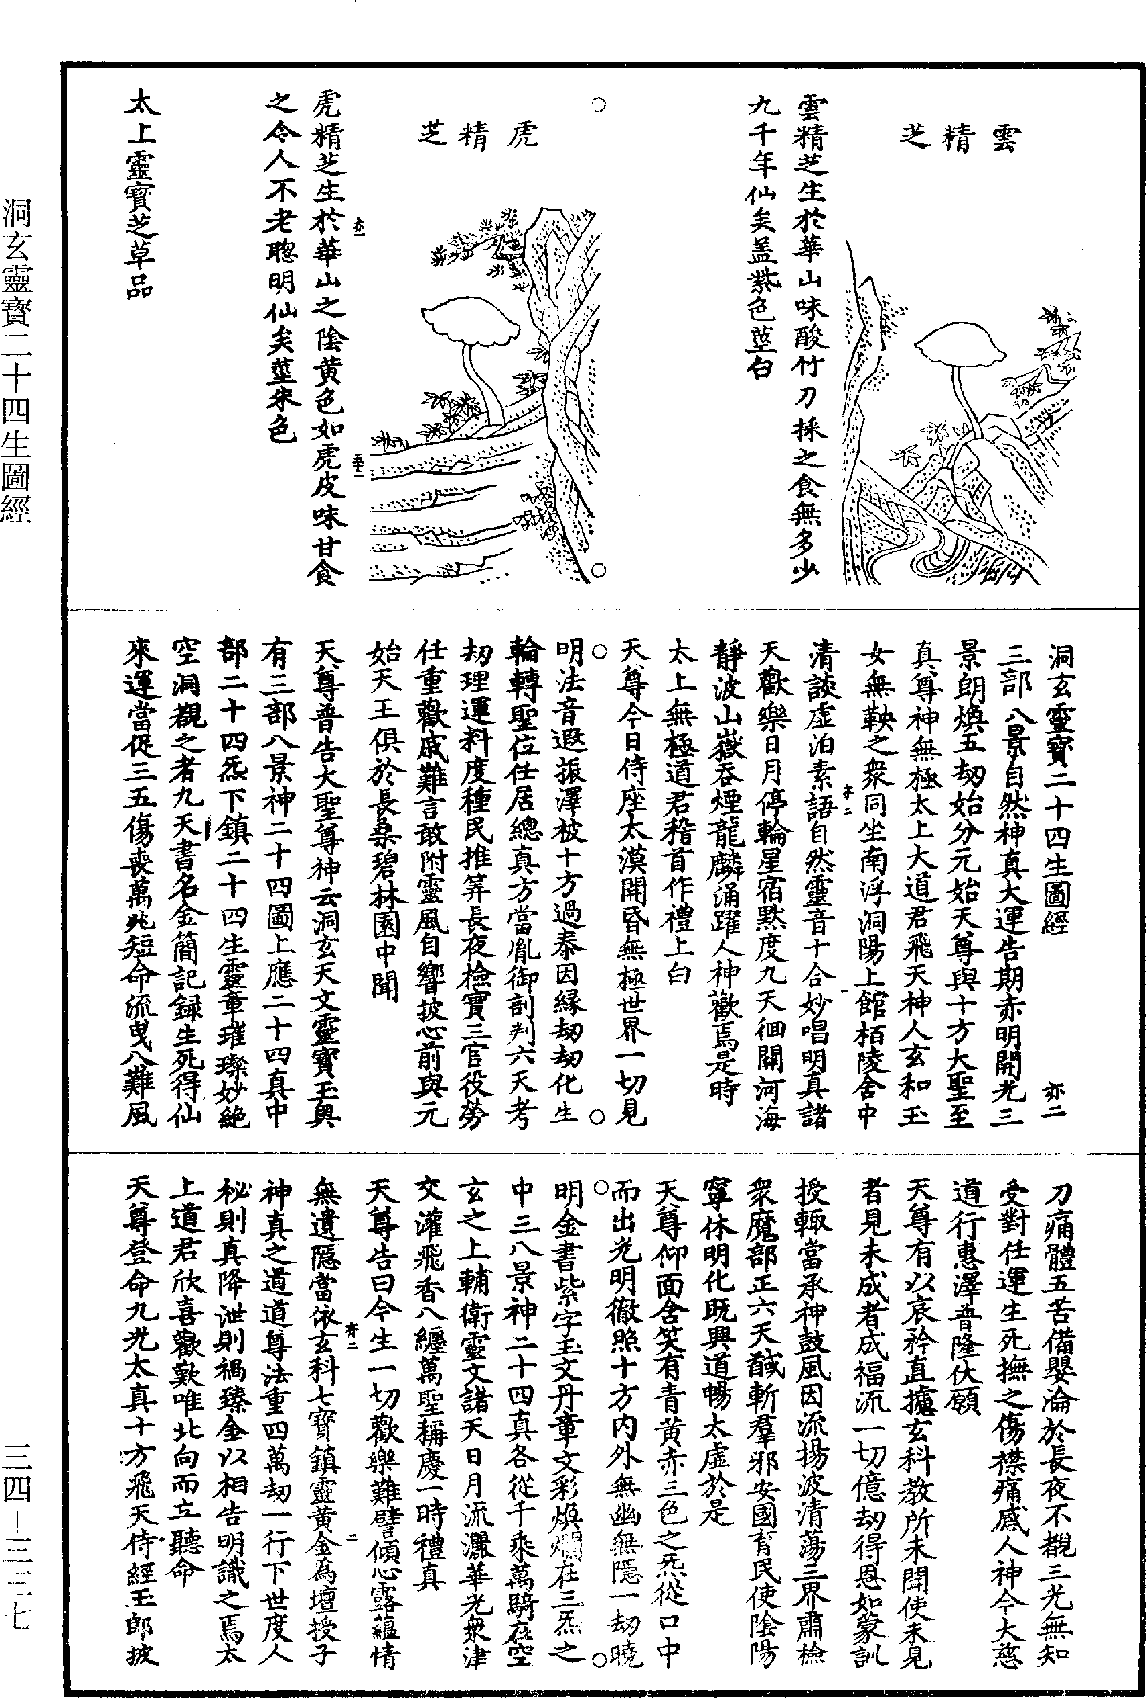 雲精芝
雲精芝生於華山味酸竹刀採之食無多少
九千年仙矣蓋紫色莖白
虎精芝
虎精芝生於華山之陰黃色如虎皮味甘食
之令人不老聰明仙矣莖朱色
太上靈寶芝草品
洞玄靈寶二十四生圖經
三部八景自然神真大運告期赤明開光三
景朗煥五劫始分元始天尊與十方大聖至
真尊神無極太上大道君飛天神人玄和玉
女無鞅之衆同坐南浮洞陽上館栢陵舍中
清談虛泊素語自然靈音十合妙唱明真諸
天歡樂日月停輪星宿默度九天徊關河海
靜波山嶽吞煙龍麟涌躍人神歡焉是時
太上無極道君稽首作禮上白
天尊今日侍座太漠開昏無極世界一切見
明法音遐振澤被十方過泰因緣劫劫化生
輪轉聖位任居總真方當胤御剖判六天考
劫理運料度種民推筭長夜檢實三官役勞
任重歡戚難言敢附靈風自響披心前與元
始天王俱於長桑碧林園中聞
天尊普告大聖尊神云洞玄天文靈寶玉奧
有三部八景神二十四圖上應二十四真中
部二十四炁下鎮二十四生靈章璀璨妙絕
空洞覩之者九天書名金簡記録生死得仙
來運當促三五傷喪萬兆短命流曳八難風
刀痛體五苦備嬰淪於長夜不覩三光無知
受對任運生死撫之傷襟痛感人神今大慈
道行惠澤普隆伏願
天尊有以哀矜直攄玄科教所未聞使未見
者見未成者成福流一切億劫得恩如蒙訓
授輒當承神鼓風因流揚波清蕩三界肅檢
衆魔部正六天馘斬羣邪安國育民使陰陽
寧休明化既興道暢太虛於是
天尊仰面含笑有青黃赤三色之炁從口中
而出光明徹照十方內外無幽無隱一劫曉
明金書紫字玉文丹章文彩煥爛在三炁之
中三八景神二十四真各從千乘萬騎在空
玄之上輔衛靈文諸天日月流灑華光衆津
交灌飛香八纏萬聖稱慶一時禮真
天尊告曰今生一切歡樂難譬傾心露蘊情
無遺隱當依玄科七寶鎮靈黃金爲壇授子
神真之道道尊法重四萬劫一行下世度人
秘則真降泄則禍臻金以相告明識之焉太
上道君欣喜歡歎唯北向而立聽命
天尊登命九光太真十方飛天侍經玉郎披
洞玄靈寶二十四生圖經
三四－三三七